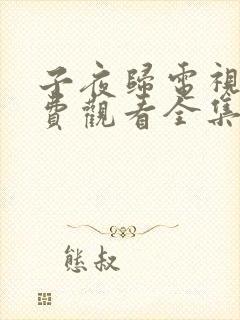 子夜歸電視
費觀看全集
熊叔